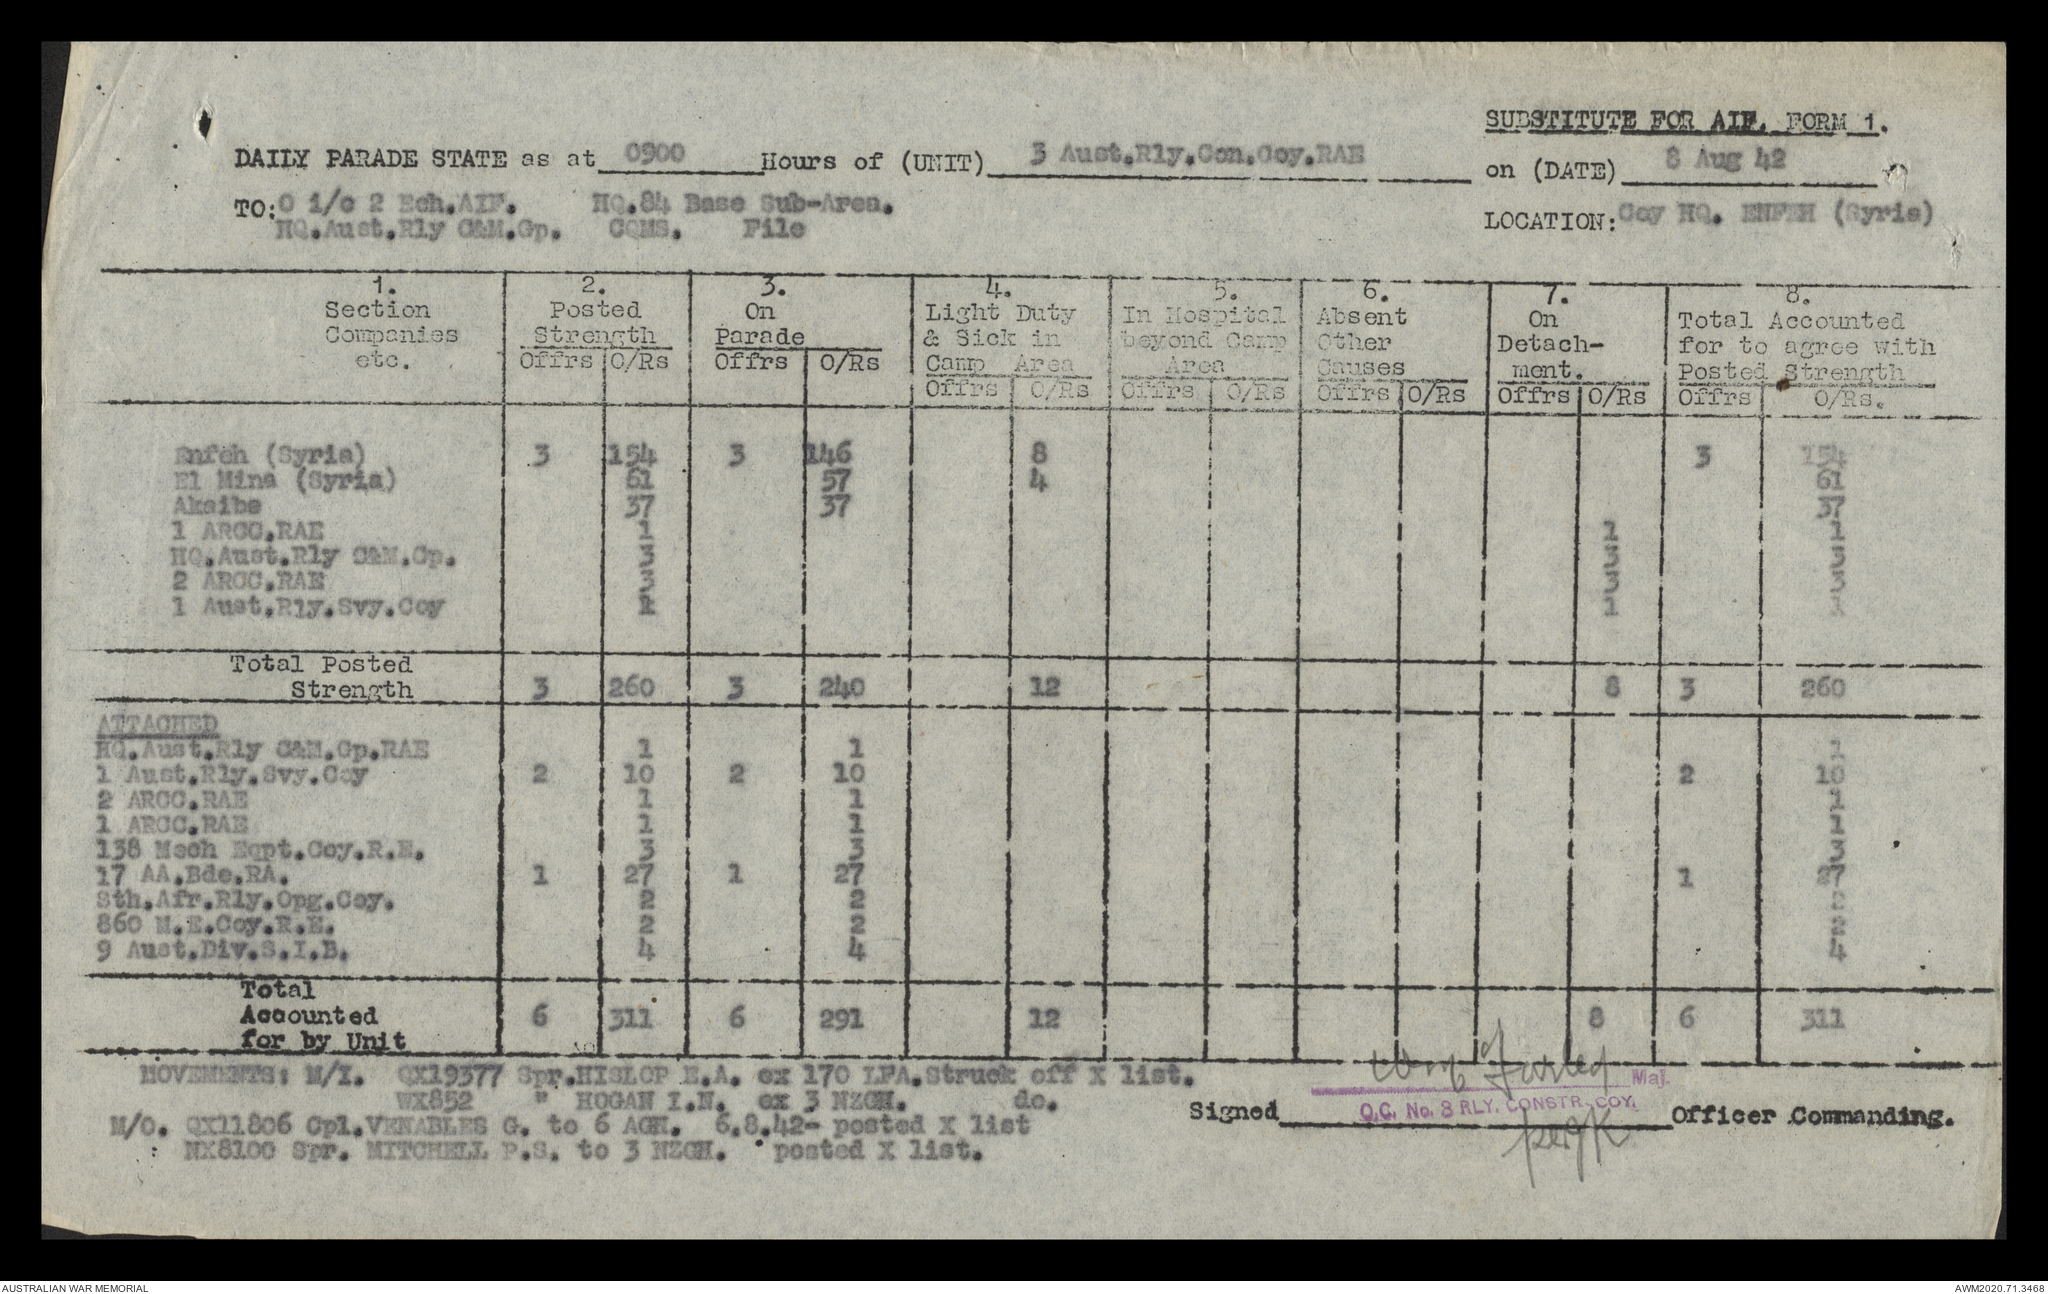 SUBSTITUTE FOR AIF. FORM 1.
DAILY PARADE STATE as at 0900 Hours of (UNIT) 3 Aust.Rly.Con.Coy.RAE on (DATE) 8 Aug 42
TO: O i/c 2 Ech.AIF. HQ.84 Base Sub-Area. LOCATION: Coy HQ. ENFEH (Syria)
HQ.Aust.Rly C&M.Gp. CQMS. File
1. 2. 3. 4. 5. 6. 7. 8.
Section Posted On Light Duty In Hospital Absent On Total Accounted
Companies Strength Parade & Sick in beyond Camp Other Detach- for to agree with
etc. Camp Area Area Causes ment. Posted Strength
Offrs O/Rs Offrs O/Rs Offrs O/Rs Offrs O/Rs Offrs O/Rs Offrs O/Rs Offrs O/Rs.
Enfeh (Syria) 3 154 3 146 8 3 154
El Mina (Syria) 61 57 4 61
Akaibe 37 37 37
1 ARCC.RAE 1 1 1
HQ.Aust.Rly C&M.Gp. 3 3 3
2 ARCC.RAE 3 3 3
1 Aust.Rly.Svy.Coy 1 1 1
Total Posted
Strength 3 260 3 240 12 8 3 260
ATTACHED
HQ.Aust.Rly C&M.Gp.RAE 1 1 1
1 Aust.Rly.Svy.Coy 2 10 2 10 2 10
2 ARCC.RAE 1 1 1
1 ARCC.RAE 1 1 1
138 Mech Eqpt.Coy.R.E. 3 3 3
17 AA.Bde.RA. 1 27 1 27 1 27
Sth.Afr.Rly.Opg.Coy. 2 2 2
860 M.E.Coy.R.E. 2 2 2
9 Aust.Div.S.I.B. 4 4 4
Total
Accounted
for by Unit 6 311 6 291 12 8 6 311
MOVEMENTS: M/I. QX19377 Spr.HISLOP E.A. ex 170 LFA.Struck off X list.
WX852 " HOGAN I.N. ex 3 NZGH. do.
M/O. QX11806 Cpl.VENABLES G. to 6 AGH. 6.8.42- posted X list
NX8100 Spr. MITCHELL P.S. to 3 NZGH. posted X list.
Maj.
O.C. No. 3 RLY. CONSTR. COY.
Signed Officer Commanding.
AUSTRALIAN WAR MEMORIAL
AWM2020.71.3468